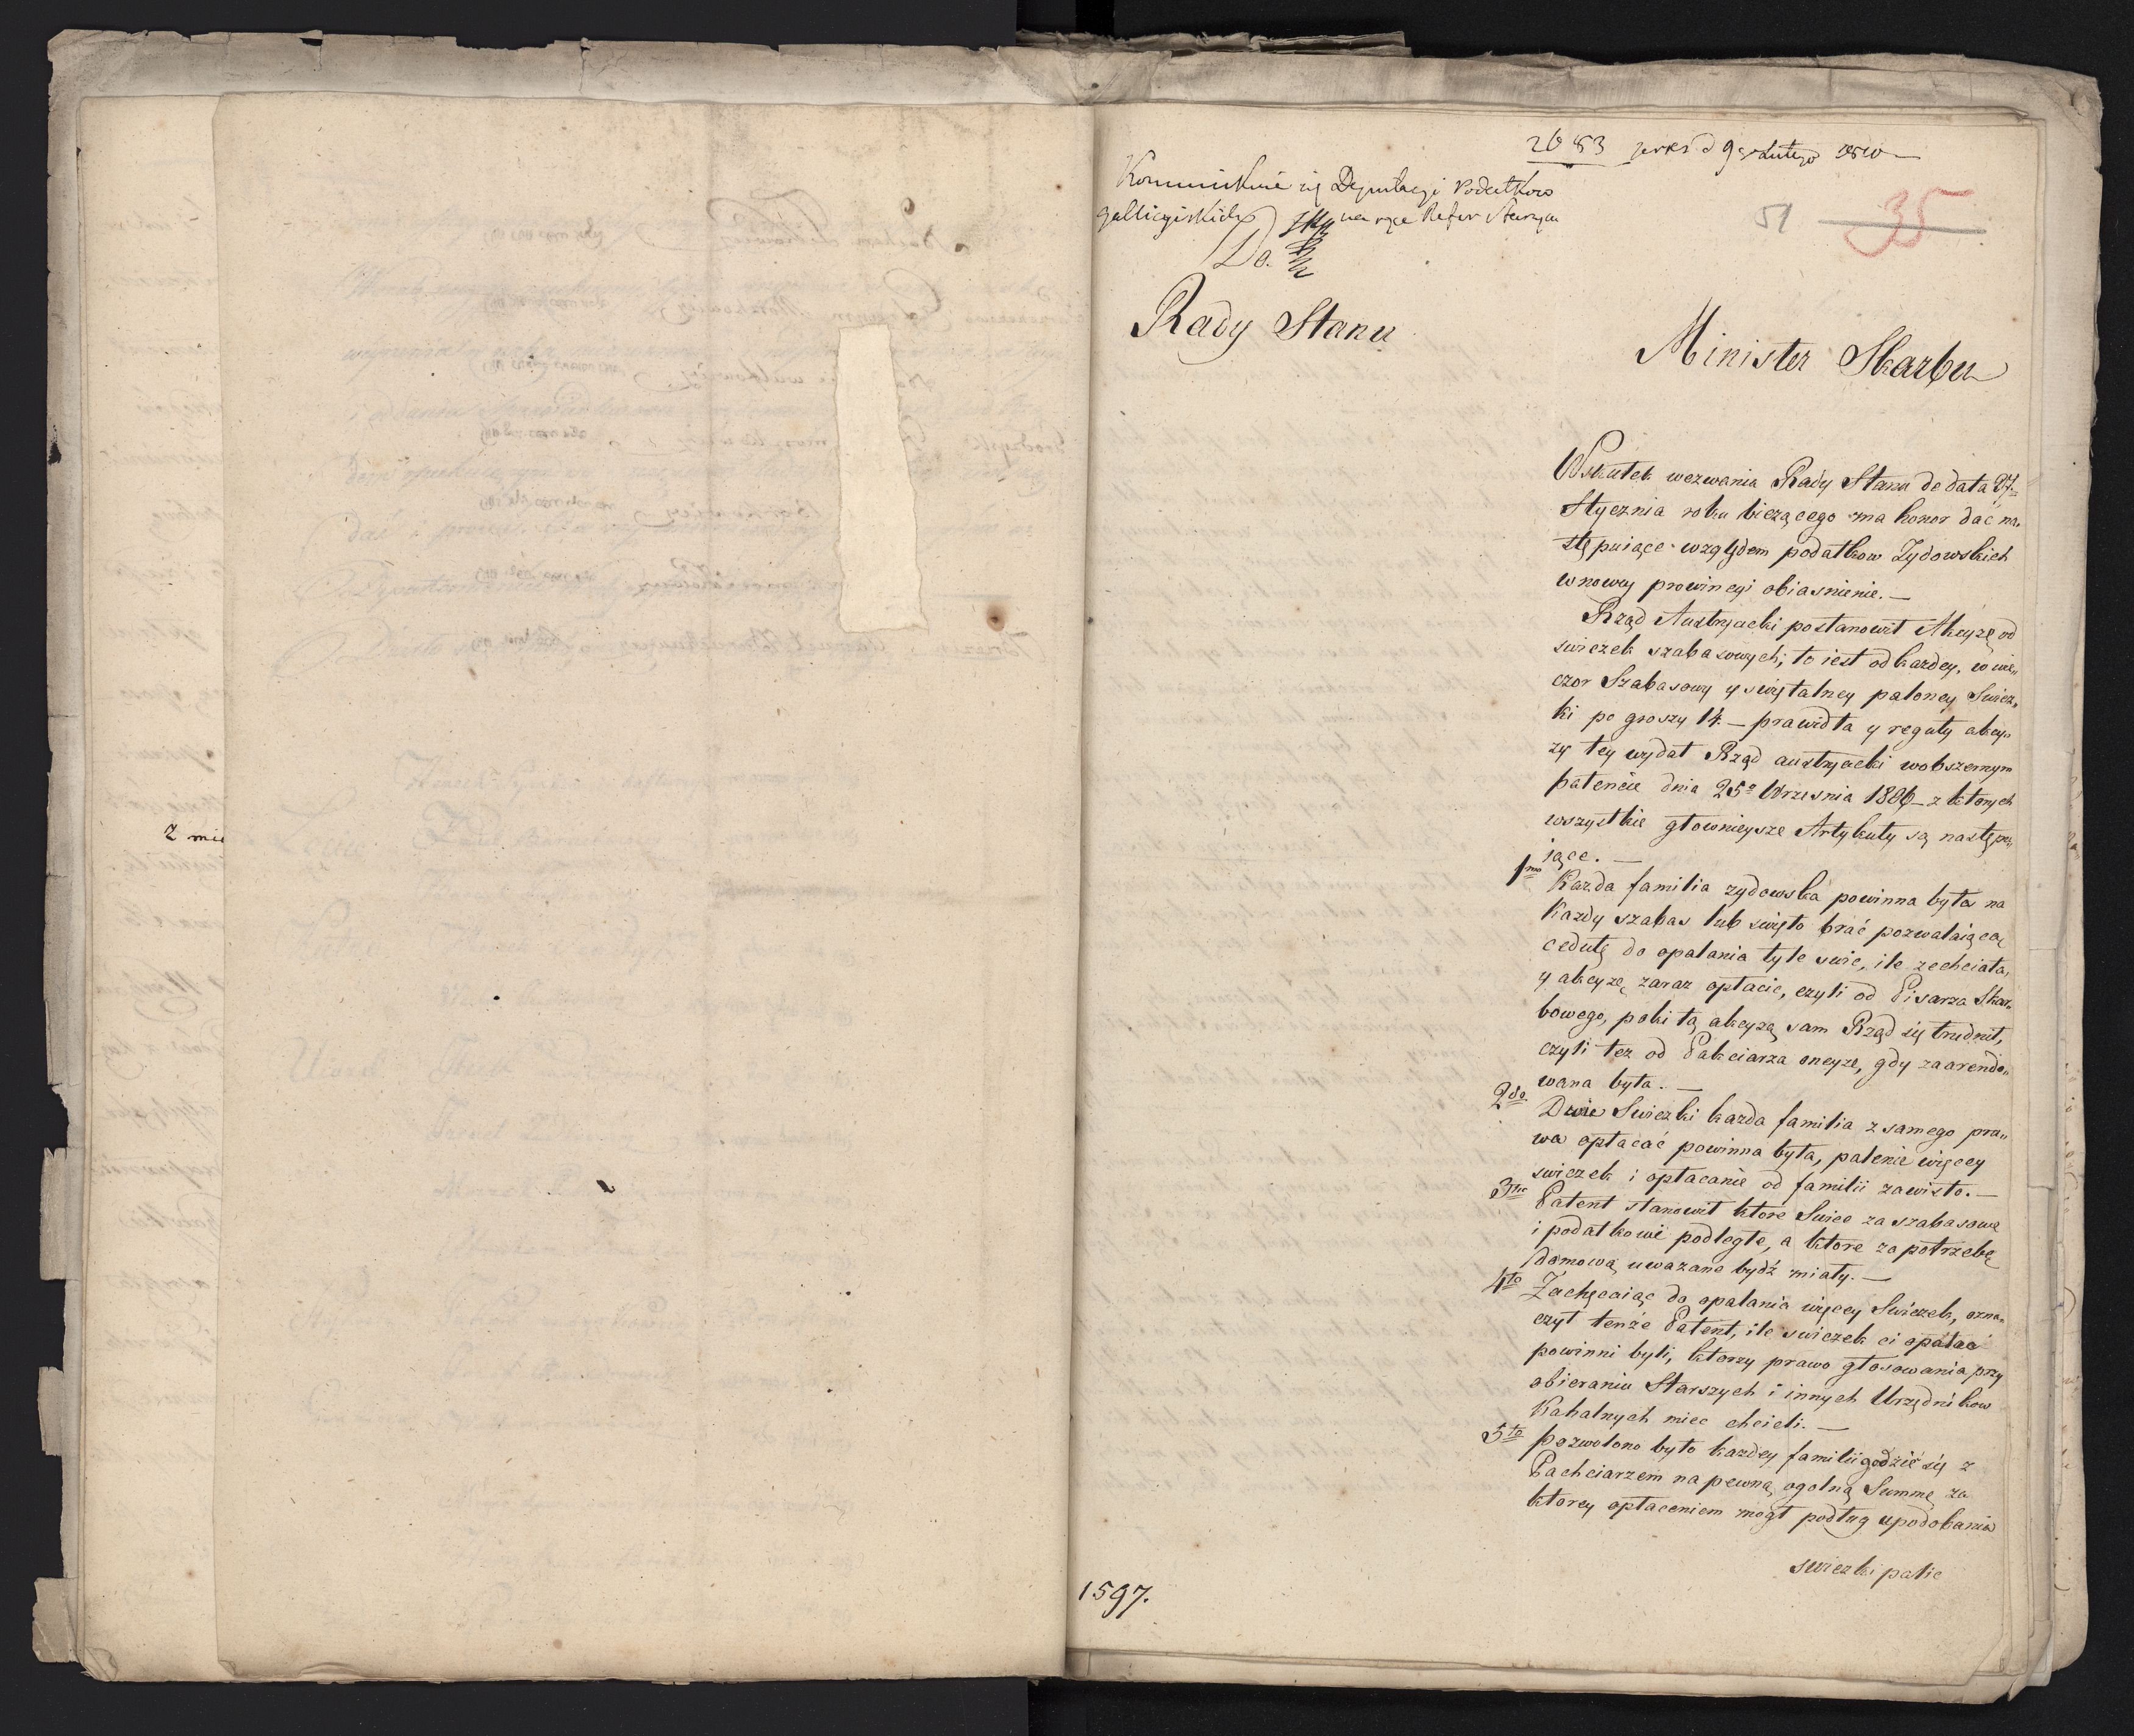 2 mi
2653 d 9 Lutego 1810
Kommunikuie się Deputacyi Podatkow
gallicyiskich na ręce Refer
51 35
Do.
Rady Stanu
Minister Skarbu
Wskutek wezwania Rady Stanu de data 27
Stycznia roku bieżącego ma honor dać na„
stępuiące względem podatkow Zydowskich
w nowey prowincyi obiasnienie. —
Rząd Austryacki postanowił Akcyzę od
swieczek szabasowych; to iest od kazdey, w wie„
czor Szabasowy y swiętalney paloney Swiecz„
ki po groszy 14. — prawidła y reguły akcy„
zy tey wydał Rząd austryacki wobszernym
patencie dnia 25º Wrzesnia 1806 — z ktorych
wszystkie głownieysze Artykuły są następu„
iące. —
1mo Kazda familia zydowska powinna była na
Kazdy szabas lub swięto brać pozwalaiącą
cedułę do opalania tyle swic, ile zechciała,
y akcyzę zaraz opłacic, czyli od Pisarza Skar„
bowego, poki tą akcyzą sam Rząd się trudnił,
czyli tez od Pakciarza oneyze, gdy zaarendo„
wana była. —
2do Dwie Swieczki kazda familia z samego pra„
wa opłacać powinna była, palenie więcey
swieczek i opłacanie od familii zawisło. —
3tio Patent stanowił ktore Swiece za szabasowe
i podatkowi podległe, a ktore za potrzebę
domową uwazane bydź miały. —
4to Zachęcaiąc do opalania więcey Swieczek, ozna„
czył tenże Patent, ile swieczek ci opalać
powinni byli, ktorzy prawo głosowania przy
obieraniu Starszych i innych Urzędnikow
Kahalnych miec chcieli. —
5to pozwolono było kazdey familii godzić się z
Pachciarzem na pewną ogolną Summę za
ktorey opłaceniem mogł podług upodobania
swieczki palic
1597.